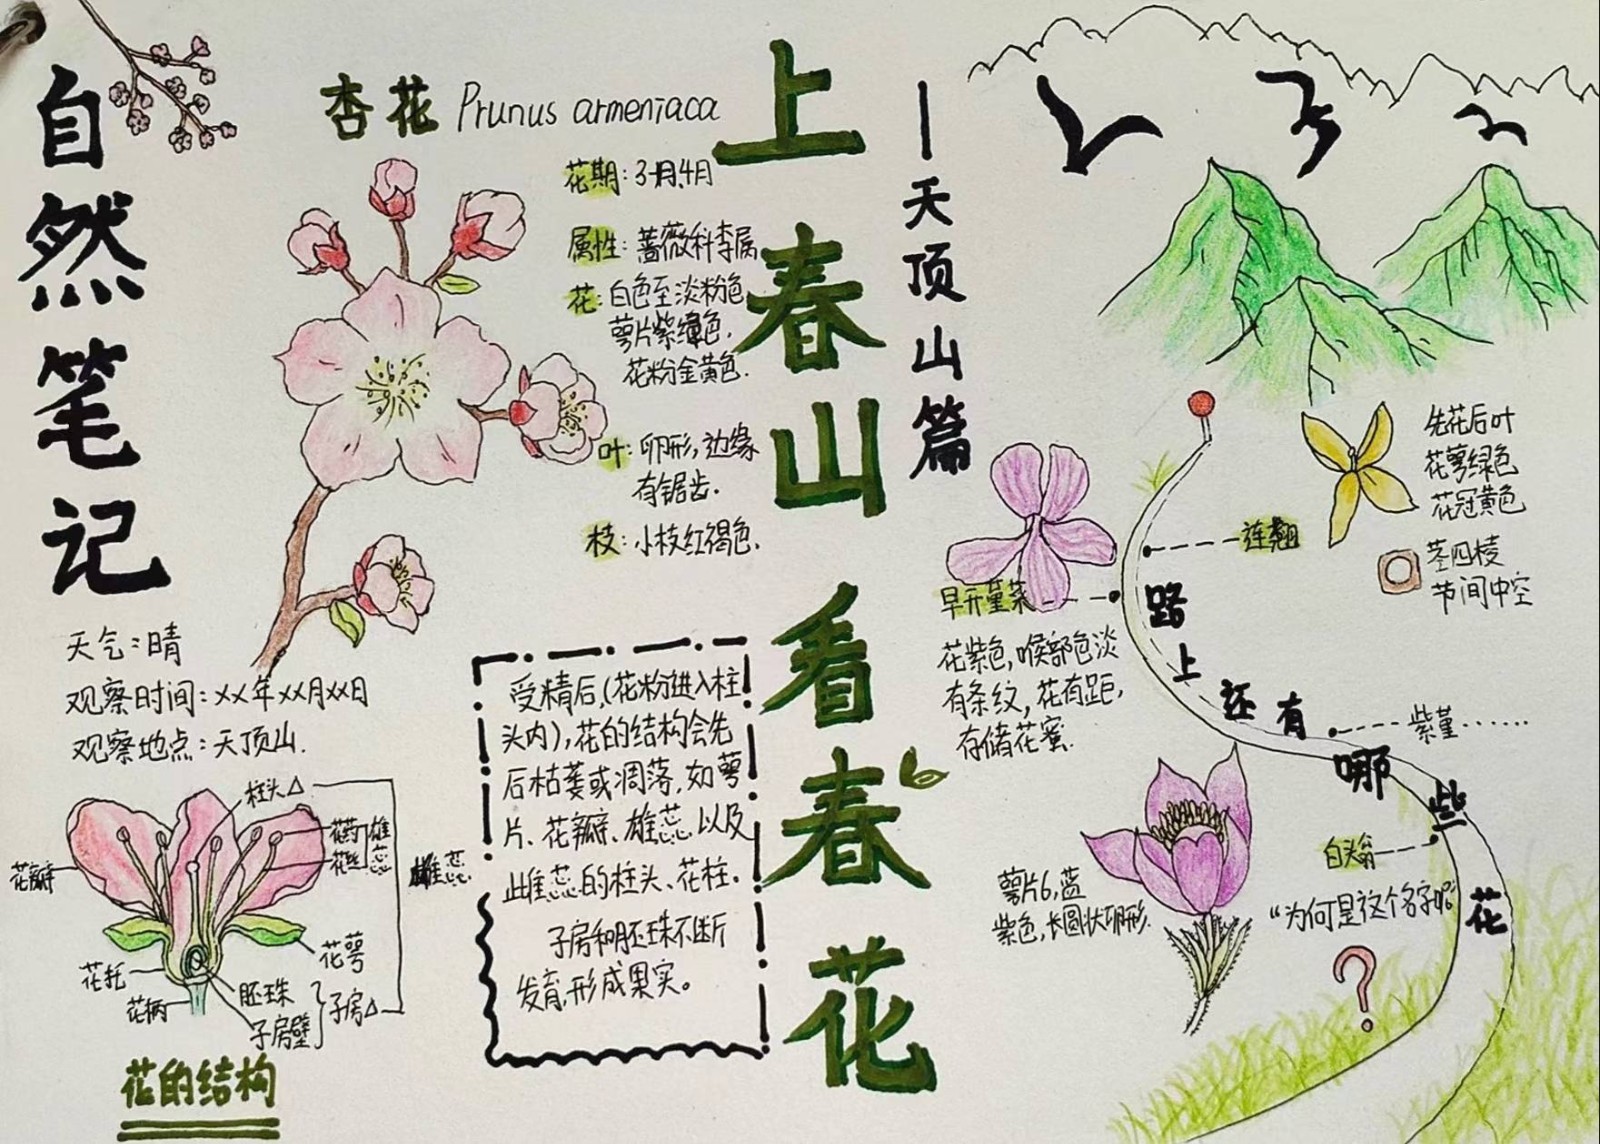 自然笔记
天气：晴
观察时间：xx年xx月xx日
观察地点：天顶山.
杏花 Prunus armeniaca
花期：3月、4月
属性：蔷薇科李属
花：白色至淡粉色
萼片紫绿色.
花粉金黄色.
叶：卵形，边缘
有锯齿.
枝：小枝红褐色.
上春山看春花
—天顶山篇
柱头△
花药
花丝
雄蕊
雌蕊
花瓣
花萼
花托
花柄
胚珠
子房壁
子房△
花的结构
受精后，(花粉进入柱
头内)，花的结构会先
后枯萎或凋落，如萼
片、花瓣、雄蕊以及
雌蕊的柱头、花柱.
子房和胚珠不断
发育，形成果实。
先花后叶
花萼绿色
花冠黄色
茎四棱
节间中空
连翘
早开堇菜
花紫色，喉部色淡
有条纹，花有距，
存储花蜜.
路上还有哪些花
紫堇……
白头翁
“为何是这个名字呢”
？
萼片6，蓝
紫色，长圆状卵形.